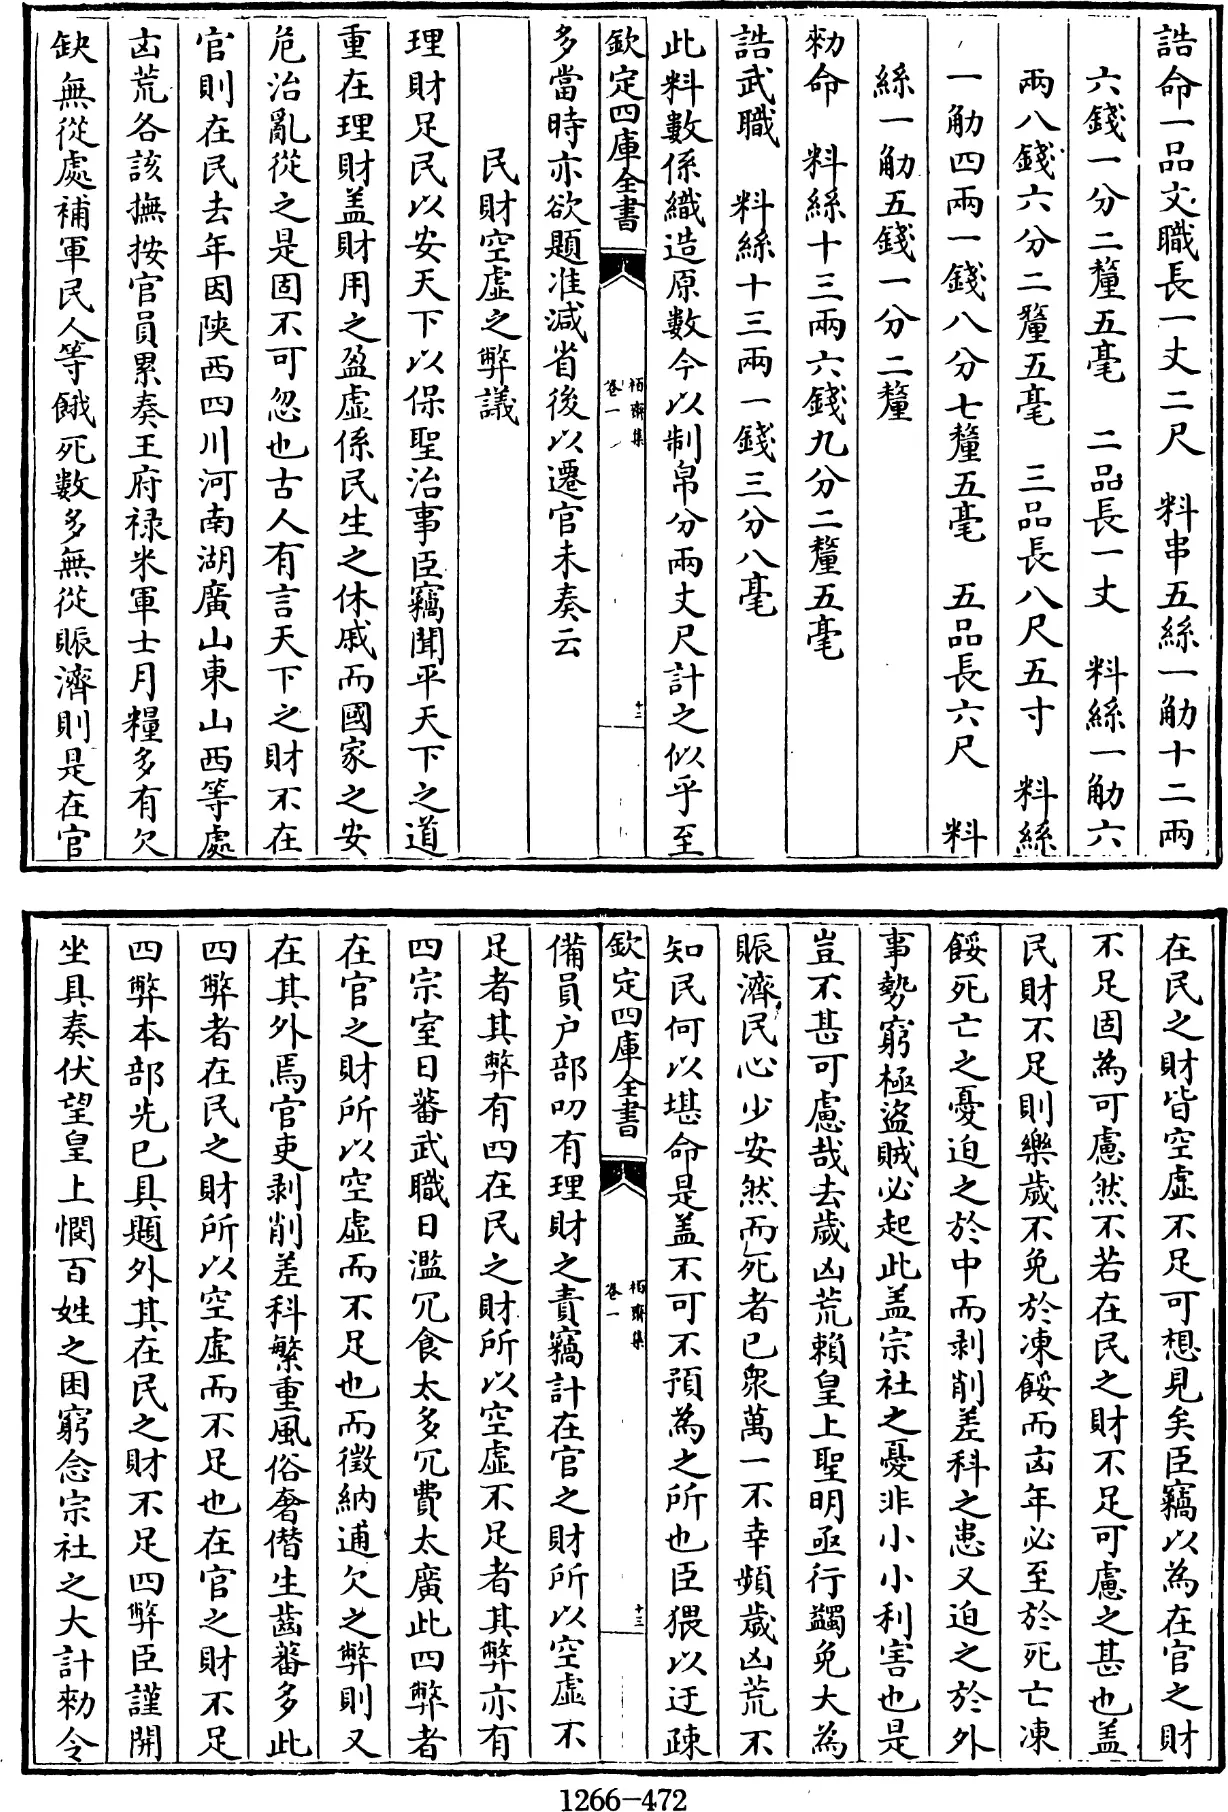 誥命一品文職長一丈二尺　料串五絲一觔十二兩
六錢一分二釐五毫　二品長一丈　料絲一觔六
兩八錢六分二釐五毫　三品長八尺五寸　料絲
一觔四兩一錢八分七釐五毫　五品長六尺　料
絲一觔五錢一分二釐
勑命　料絲十三兩六錢九分二釐五毫
誥武職　料絲十三兩一錢三分八毫
此料數係織造原數今以制帛分兩丈尺計之似乎至
欽定四庫全書
栢齋集
卷一
十二
多當時亦欲題准減省後以遷官未奏云
民財空虛之弊議
理財足民以安天下以保聖治事臣竊聞平天下之道
重在理財盖財用之盈虛係民生之休戚而國家之安
危治亂從之是固不可忽也古人有言天下之財不在
官則在民去年因陝西四川河南湖廣山東山西等處
凶荒各該撫按官員累奏王府禄米軍士月糧多有欠
缺無從處補軍民人等餓死數多無從賑濟則是在官
在民之財皆空虛不足可想見矣臣竊以為在官之財
不足固為可慮然不若在民之財不足可慮之甚也盖
民財不足則樂歲不免於凍餒而凶年必至於死亡凍
餒死亡之憂迫之於中而剥削差科之患又迫之於外
事勢窮極盜賊必起此盖宗社之憂非小小利害也是
豈不甚可慮哉去歲凶荒賴皇上聖明亟行蠲免大為
賑濟民心少安然而死者已衆萬一不幸頻歲凶荒不
知民何以堪命是盖不可不預為之所也臣猥以迂疎
欽定四庫全書
栢齋集
卷一
十三
備員户部叨有理財之責竊計在官之財所以空虛不
足者其弊有四在民之財所以空虛不足者其弊亦有
四宗室日蕃武職日濫冗食太多冗費太廣此四弊者
在官之財所以空虛而不足也而徵納逋欠之弊則又
在其外焉官吏剥削差科繁重風俗奢僭生齒蕃多此
四弊者在民之財所以空虛而不足也在官之財不足
四弊本部先已具題外其在民之財不足四弊臣謹開
坐具奏伏望皇上憫百姓之困窮念宗社之大計勑令
1266-472